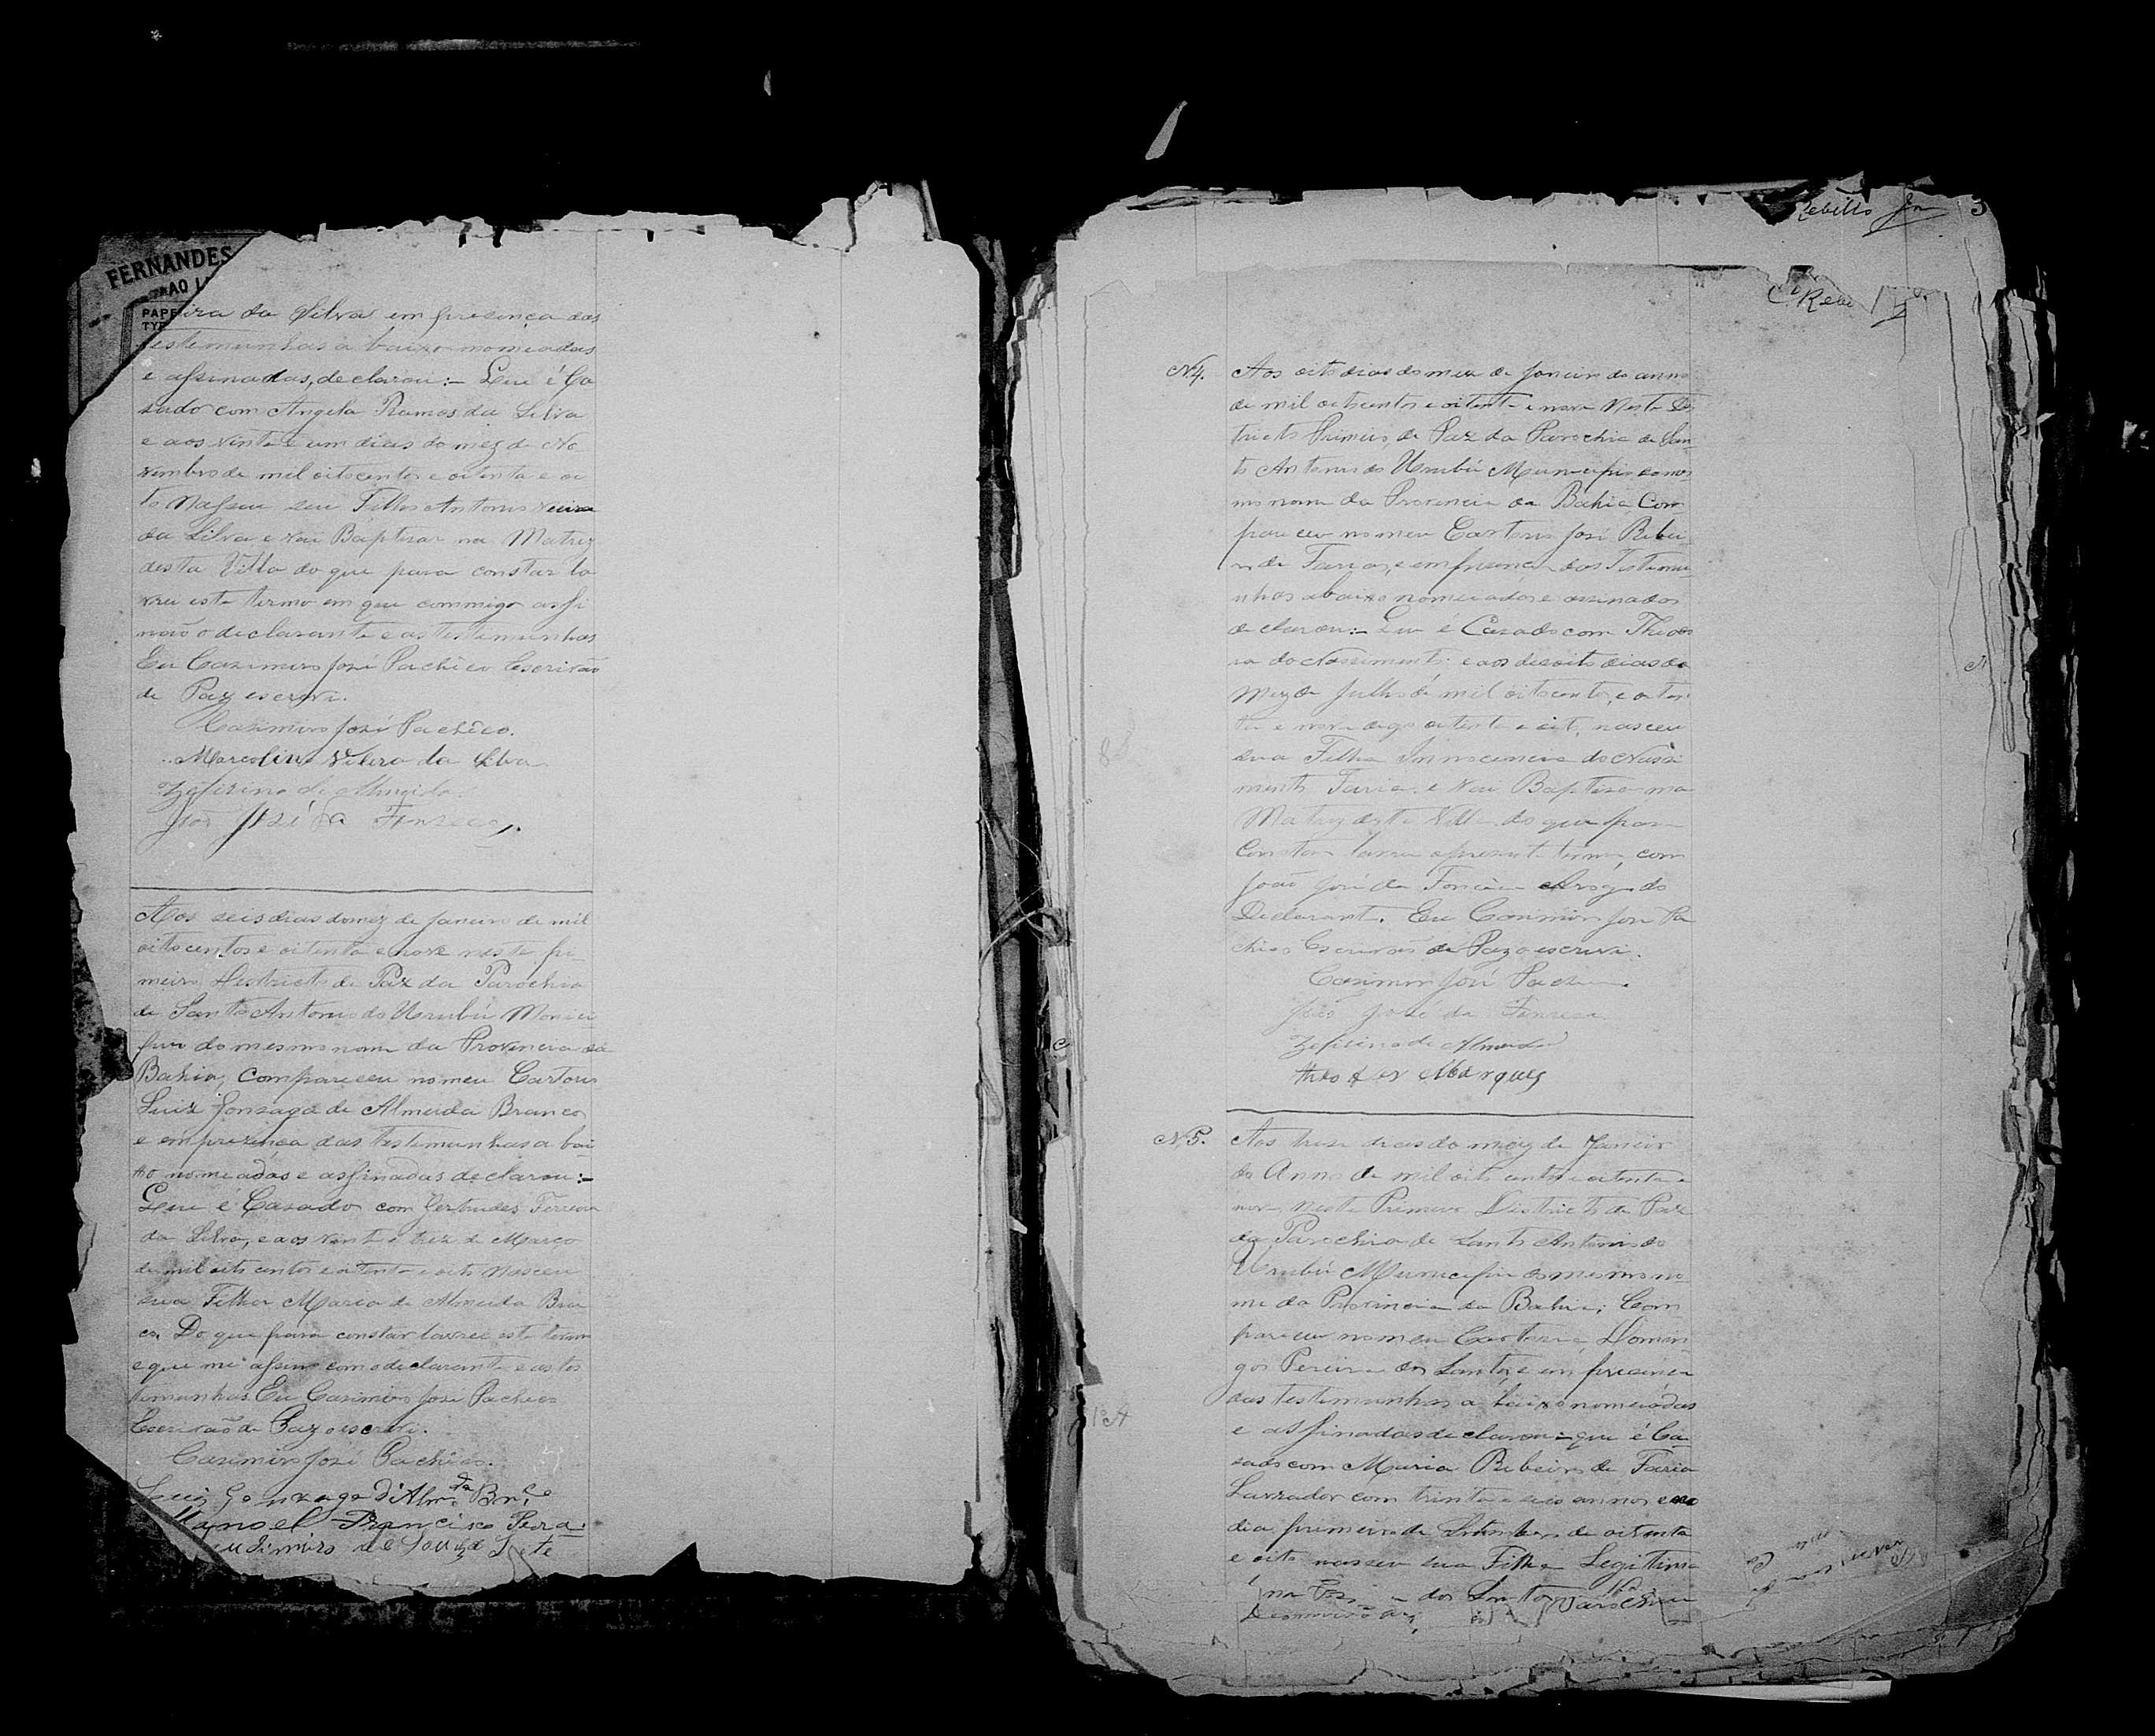 FERNANDES
PAPE
TYP
ira da Silva em presença das
testemunhas a baixo nomeadas
e assinadas, declarou:- Que é Ca
sado com Angela Ramos da Silva
e aos vinte e um dias do mez de No
vembro de mil oitocentos e oitenta e oi
to Nasseu seu Filho Antonio
da Silva e vai Baptisar na Matriz
desta Villa do que para constar la
vrei este termo em que commigo assi
não o declarante e as testemunhas
Eu Casimiro José Pacheco Escrivão
de Paz escrevi.
Casimiro José Pacheco.
Marcolino Vieira da Silva
Zeferino de Almeida.
João José da Fonseca.
Aos seis dias do mez de Janeiro de mil
oitocentos e oitenta e nove neste pri
meiro Destricto de Paz da Parochia
de Santo Antonio do Urubú Munici
pio do mesmo nome da Provincia da
Bahia, compareceu no meu Cartorio
Luiz Gonzaga de Almeida Branco,
e em prezença das testemunhas a bai
xo nomeadas e assinadas declarou:-
Que é Casado com Gertrudes Ferreira
da Silva, e aos vinte e trez de Março
de mil oito centos e oitenta e oito Nasceu
sua Filha Maria de Almeida Bran
ca. Do que para constar lavrei este termo
e que me assino com o declarante e as tes
temunhas. Eu Casimiro José Pacheco
Escrivão de Paz o escrevi.
Casimiro José Pacheco.
Luiz Gonzaga d'Almda Brco
Manoel Francisco
de Souza
Rebello 3
C. Rebe
N4. Aos oito dias do mez de Janeiro do anno
de mil oitocentos e oitenta e nove Neste Des
tricto Primeiro de Paz da Parochia de San
to Antonio do Urubú Municipio do mes
mo nome da Provincia da Bahia Com
pareceu no meu Cartorio José Ribei
ro de Faria, e em presença das Testemu
nhas abaixo nomeiadas e assinadas
declarou:- Que é Casado com Theodo
ra do Nassimento; e aos desoito dias do
Mez de Julho de mil oitocentos e oiten
ta e nove digo oitenta e oito, nasceu
sua Filha Innocencia do Nassi
mento Faria. e Vai Baptisar na
Matriz desta Villa do que para
Constar lavrei o presente termo, com
João José da Fonseca Arogo do
Declarante. Eu Casimiro José Pa
checo Escrivão de Paz o escrevi.
Casimiro José Pacheco
João José da Fonseca
Zeferino de Almeida
Marques
N5. Aos trese dias do mez de Janeiro
do Anno de mil oito centos e oitenta e
nove Neste Primeiro Districto de Paz
da Parochia de Santo Antonio do
Urubú Municipio do mesmo no
me da Provincia da Bahia; Com
pareceu no meu Cartorio, Domin
gos Pereira dos Santos, e em presença
das testemunhas a baixo nomeiadas
e assinadas declarou:- que é Ca
sado com Maria Ribeiro de Faria
Lavrador com trinta e seis annos e ao
dia primeiro de Setembro de oitenta
e oito nasseu sua Filha Legitima
dos Santos